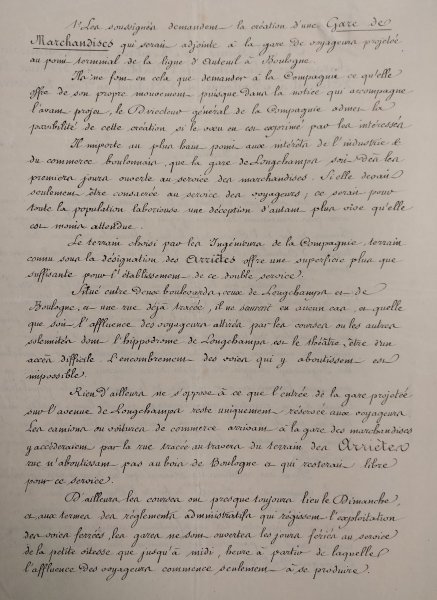 1° Les soussignés demandent la création d'une Gare de
Marchandises qui serait adjointe à la gare de voyageurs projetée
au point terminal de la ligne d'Auteuil à Boulogne.
Ils ne font en cela que demander à la Compagnie ce qu'elle
offre de son propre mouvement puisque dans la notice qui accompagne
l'avant projet, le Directeur général de la Compagnie admet la
possibilité de cette création si le vœu en est exprimé par les intéressés
Il importe au plus haut point aux intérêts de l'industrie et
du commerce boulonnais, que la gare de Longchamps soit dès les
premiers jours ouverte au service des marchandises. Si elle devait
seulement être consacrée au service des voyageurs, ce serait pour
toute la population laborieuse une déception d'autant plus vive qu'elle
est moins attendue.
Le terrain choisi par les Ingénieurs de la Compagnie, terrain
connu sous la désignation des Arriêtes offre une superficie plus que
suffisante pour l'établissement de ce double service.
Situé entre deux boulevards, ceux de Longchamps et de
Boulogne, et une rue déjà tracée, il ne saurait en aucun cas, et quelle
que soit l'affluence des voyageurs attirés par les courses ou les autres
solemnités dont l'hippodrome de Longchamps est le théâtre, être d'un
accès difficile. L'encombrement des voies qui y aboutissent est
impossible.
Rien d'ailleurs ne s'oppose à ce que l'entrée de la gare projetée
sur l'avenue de Longchamps reste uniquement réservée aux voyageurs.
Les camions ou voitures de commerce arrivant à la gare des marchandises
y accéderaient par la rue tracée au travers du terrain des Arriêtes
rue n'aboutissant pas au bois de Boulogne et qui resterait libre
pour ce service.
D'ailleurs les courses ont presque toujours lieu le Dimanche,
et aux termes des règlements administratifs qui régissent l'exploitation
des voies ferrées, les gares ne sont ouvertes les jours fériés au service
de la petite vitesse que jusqu'à midi, heure à partir de laquelle
l'affluence des voyageurs commence seulement à se produire.